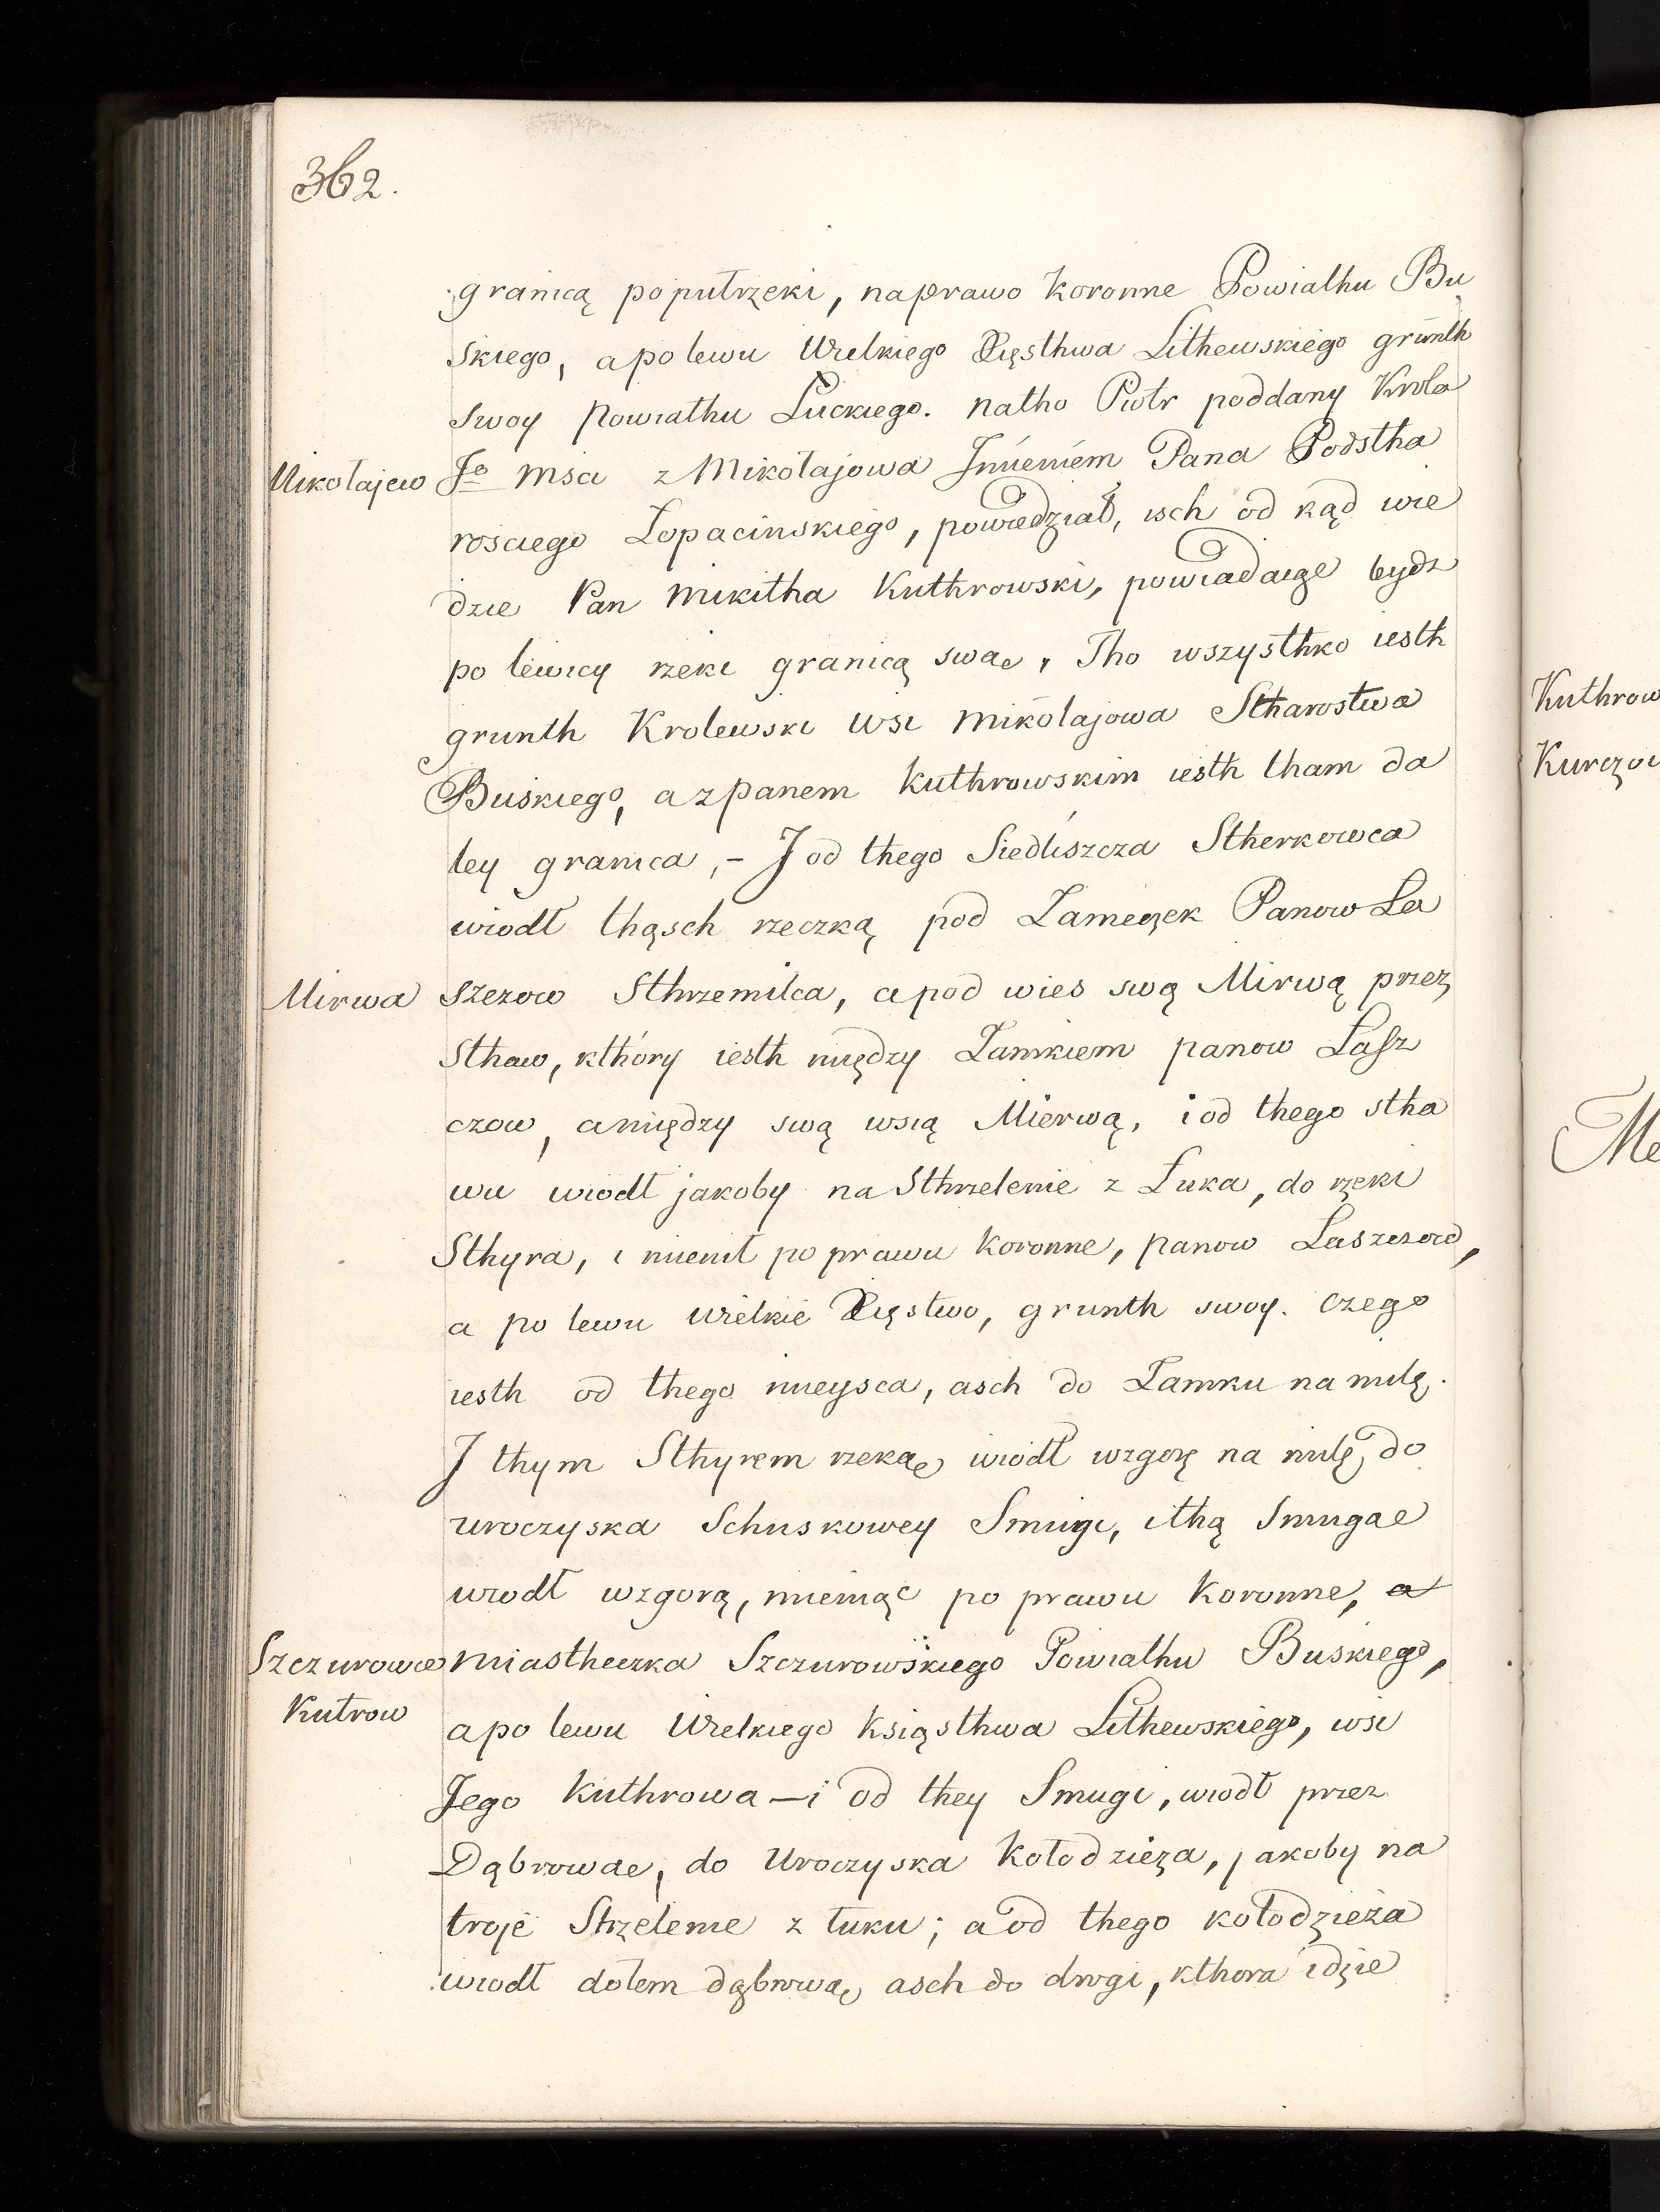 362.
granicą poputrzeki, naprawo koronne Powiathu Bu
skiego, a po lewu Wielkiego Xięsthwa Lithewskiego grunth
swoy Powiathu Łuckiego. natho Piotr poddany Krola
Mikołajew
Jo Msci z Mikołajowa Jmieniem Pana Podstha
rosciego Łopacinskiego, powiedział, isch od kąd wie
dzie Pan Mikitha Kuthrowski, powiadaiąc bydz
po lewicy rzeki granicą swae, Tho wszysthko iesth
grunth Krolewski wsi Mikołajowa Stharostwa
Buskiego, a z panem kuthrowskim iesth tham da
ley granica, - J od thego Siedliszcza Stherkowca
wiodł thąsch rzeczką pod Zameczek Panow La
Mirwa
szczow Sthrzemilca, a pod wies swą Mirwą przez
Sthaw, kthory iesth między Zamkiem panow Łasz
czow, a między swą wsią Mierwą, i od thego stha
wu wiodł jakoby na Sthrzelenie z Łuka, do rzeki
Sthyra, i mienił po prawu koronne, panow Łaszczow,
a po lewu Wielkie Xięstwo, grunth swoy. czego
iesth od thego mieysca, asch do Zamku na milę.
J thym Sthyrem rzekae wiodł wzgorę na milę do
uroczyska Schuskowey Smugi, i thą Smugae
wiodł wzgorą, mieniąc po prawu Koronne, a
Szczurowce
miastheczka Szczurowskiego Powiathu Buskiego,
Kutrow
a po lewu Wielkiego Ksiąsthwa Lithewskiego, wsi
Jego Kuthrowa - i od they Smugi, wiodł przez
Dąbrowae, do Uroczyska Kołodzieza, jakoby na
troje Strzelenie z łuku; a od thego kołodzieża
wiodł dołem dąbrowae asch do drogi, kthora idzie
Kuthrow